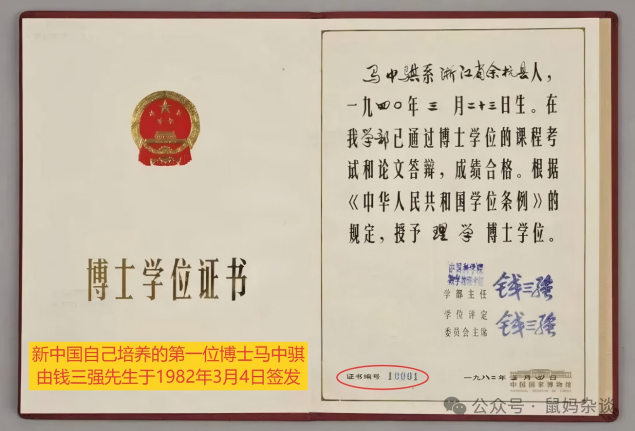 博士学位证书
新中国自己培养的第一位博士马中骐
由钱三强先生于1982年3月4日签发
马中骐系浙江省余杭县人，
一九四〇年三月二十三日生。在
我学部已通过博士学位的课程考
试和论文答辩，成绩合格。根据
《中华人民共和国学位条例》的
规定，授予理学博士学位。
中国科学院
学部主任 钱三强
学位评定
委员会主席 钱三强
证书编号 10001
一九八二年三月四日
中国国家博物馆
公众号·鼠妈杂谈